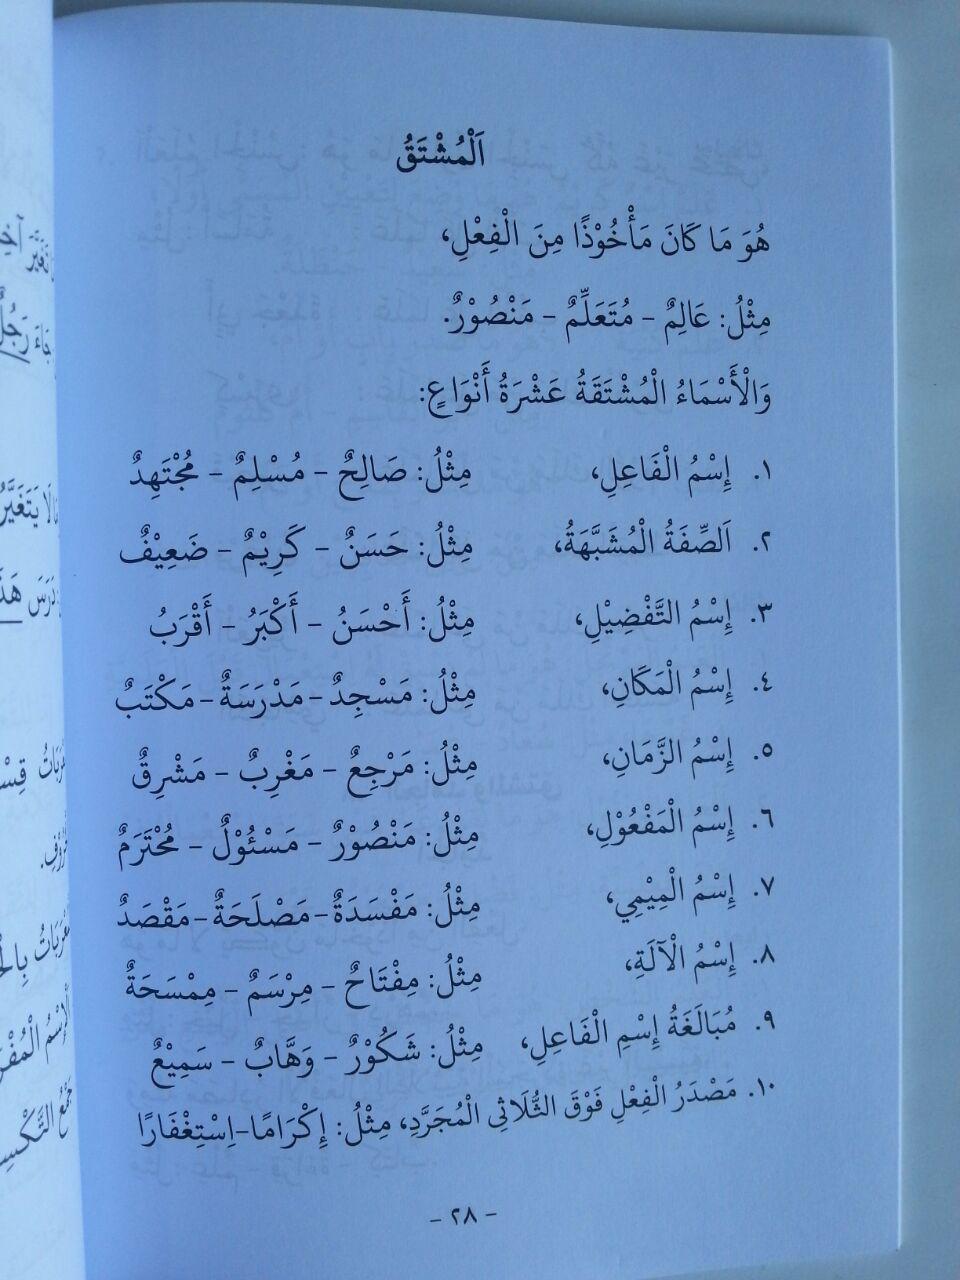 اَلْمُشْتَقُ
هُوَ مَا كَانَ مَأْخُوْذًا مِنَ الْفِعْلِ،
مِثْلُ: عَالِمٌ – مُتَعَلِّمٌ – مَنْصُوْرٌ.
وَالْأَسْمَاءُ الْمُشْتَقَةُ عَشْرَةُ أَنْوَاعٍ:
١. إِسْمُ الْفَاعِلِ، مِثْلُ: صَالِحٌ – مُسْلِمٌ – مُجْتَهِدٌ
٢. اَلصِّفَةُ الْمُشَبَّهَةُ، مِثْلُ: حَسَنٌ – كَرِيْمٌ – ضَعِيْفٌ
٣. إِسْمُ التَّفْضِيْلِ، مِثْلُ: أَحْسَنُ – أَكْبَرُ – أَقْرَبُ
٤. إِسْمُ الْمَكَانِ، مِثْلُ: مَسْجِدٌ – مَدْرَسَةٌ – مَكْتَبٌ
٥. إِسْمُ الزَّمَانِ، مِثْلُ: مَرْجِعٌ – مَغْرِبٌ – مَشْرِقٌ
٦. إِسْمُ الْمَفْعُوْلِ، مِثْلُ: مَنْصُوْرٌ – مَسْئُوْلٌ – مُحْتَرَمٌ
٧. إِسْمُ الْمِيْمِي، مِثْلُ: مَفْسَدَةٌ – مَصْلَحَةٌ – مَقْصَدٌ
٨. إِسْمُ الْآلَةِ، مِثْلُ: مِفْتَاحٌ – مِرْسَمٌ – مِمْسَحَةٌ
٩. مُبَالَغَةُ إِسْمِ الْفَاعِلِ، مِثْلُ: شَكُوْرٌ – وَهَّابٌ – سَمِيْعٌ
١٠. مَصْدَرُ الْفِعْلِ فَوْقَ الثُّلَاثِي الْمُجَرَّدِ، مِثْلُ: إِكْرَامًا–اِسْتِغْفَارًا
– ٢٨ –